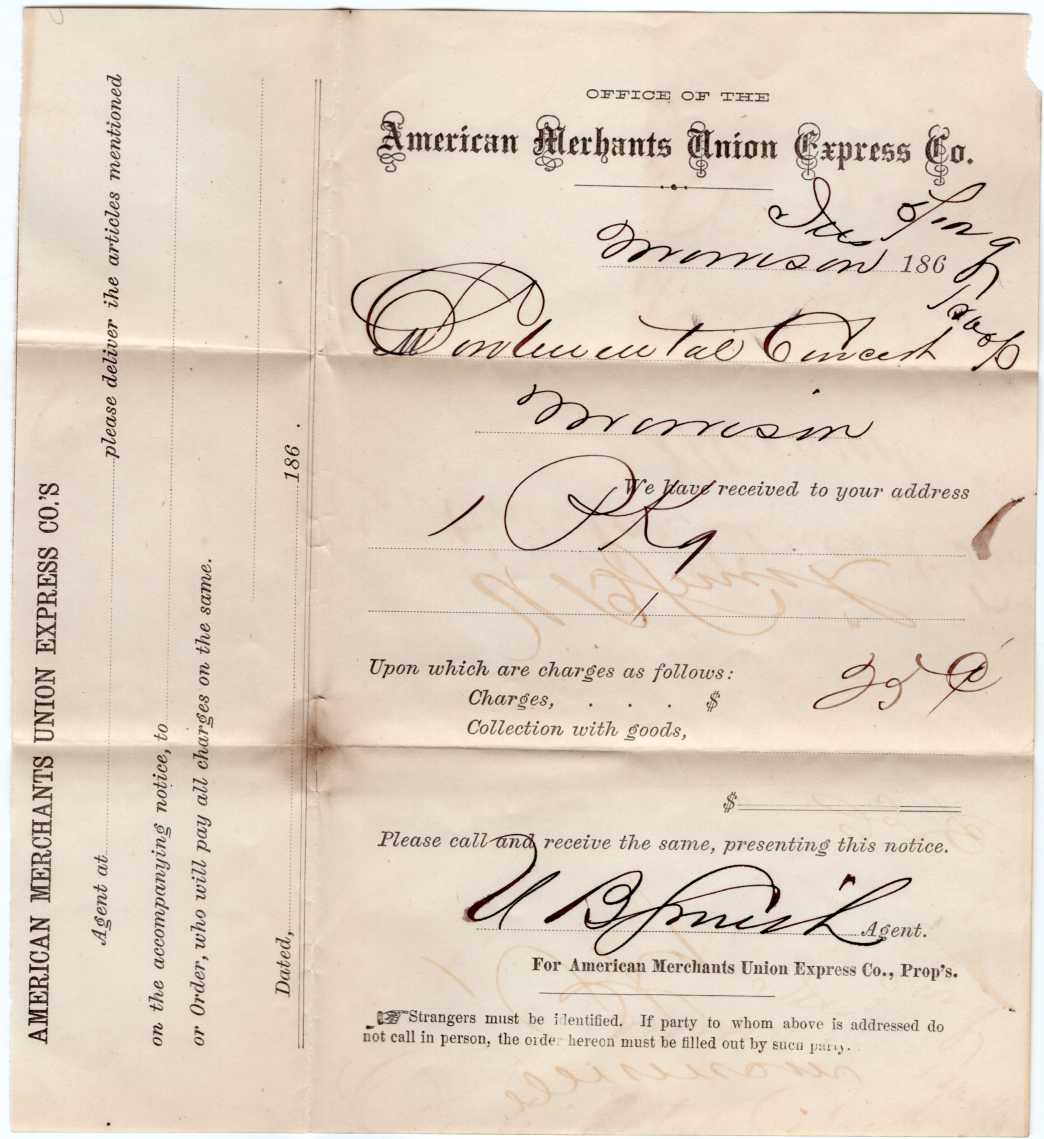 OFFICE OF THE
American Merhants Union Express Co.
Morrison 186
Morrison
We have received to your address
1 Pkg
Upon which are charges as follows:
Charges, . . . $ 25 ¢
Collection with goods,
$
Please call and receive the same, presenting this notice.
U B Smith Agent.
For American Merchants Union Express Co., Prop's.
☞ Strangers must be identified. If party to whom above is addressed do
not call in person, the order hereon must be filled out by such party.
AMERICAN MERCHANTS UNION EXPRESS CO.'S
Agent at please deliver ihe articles mentioned
on the accompanying notice, to
or Order, who will pay all charges on the same.
Dated, 186 .